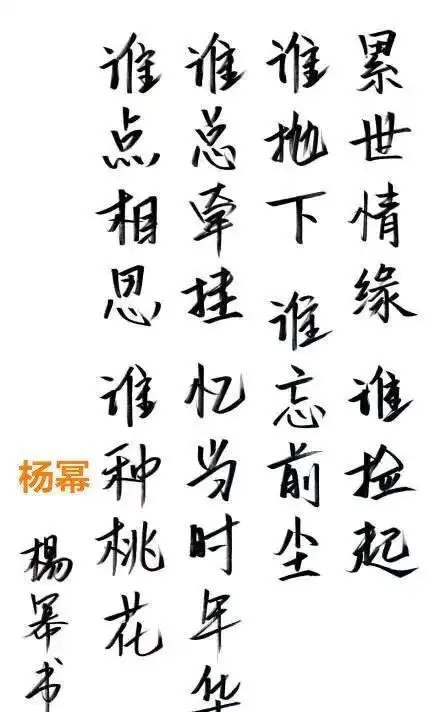 累世情缘 谁捡起
谁抛下 谁忘前尘
谁总牵挂 忆当时年华
谁点相思 谁种桃花
杨幂
杨幂书